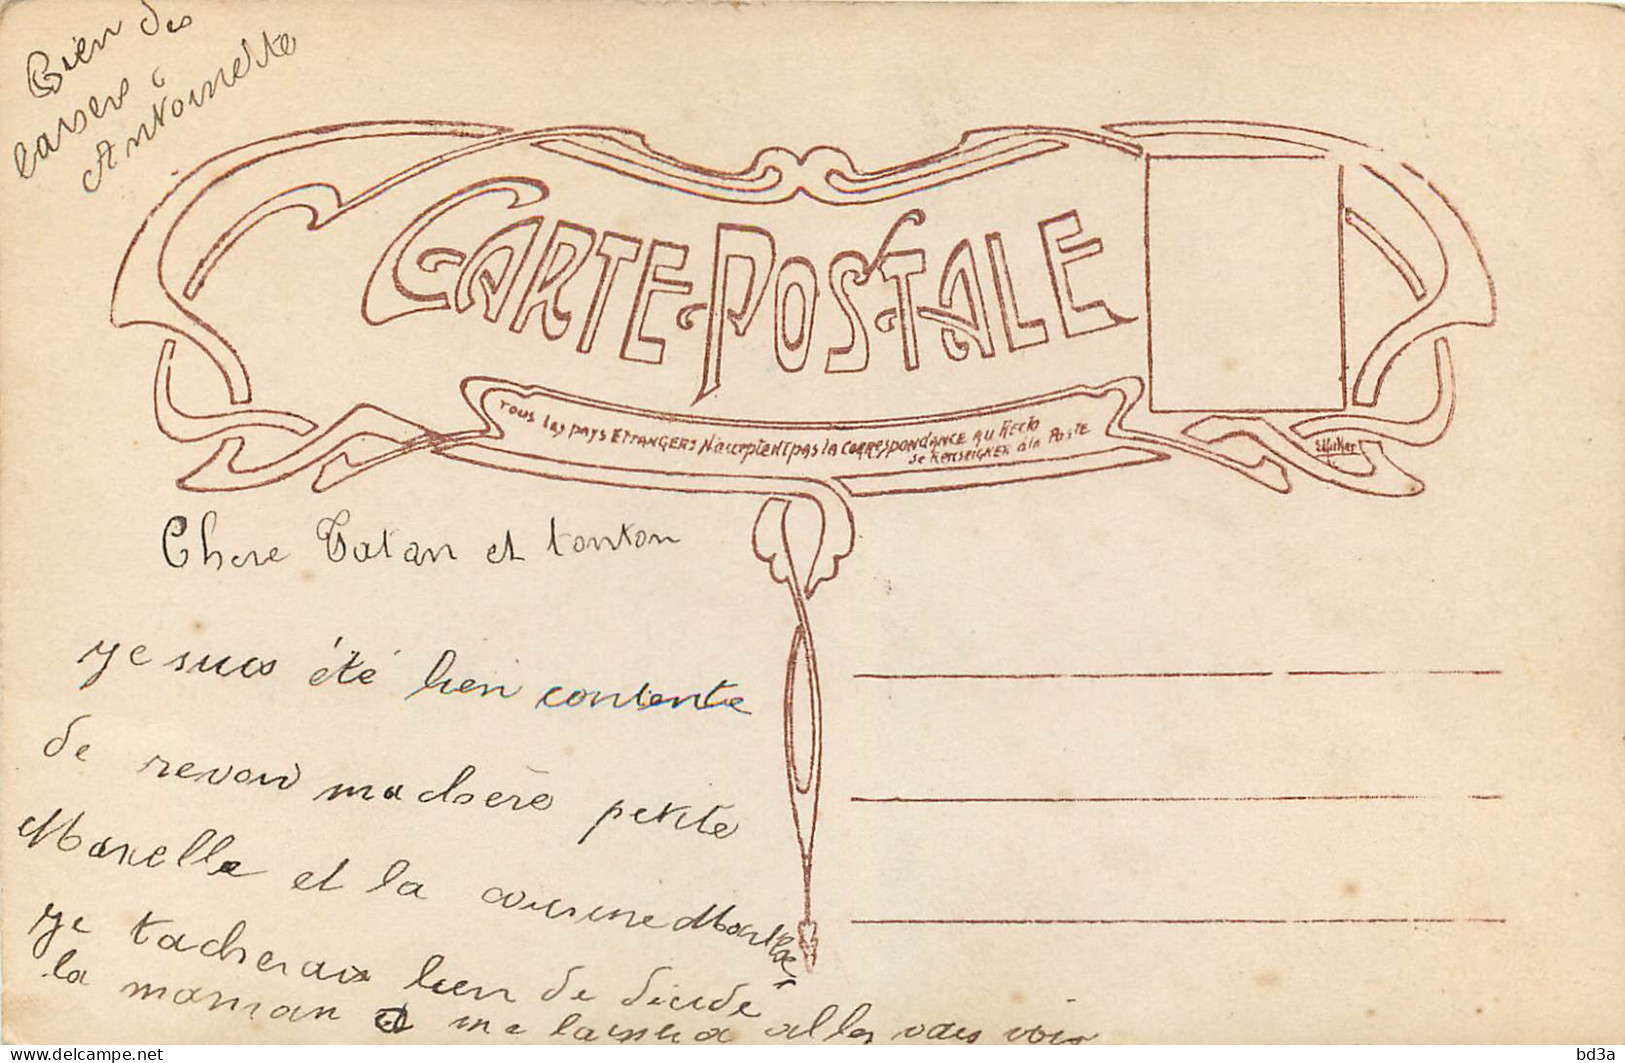 Bien des
baisers à
Antoinette
CARTE-POSTALE
Tous les pays Etrangers N'acceptent pas la Correspondance au Recto
Se Renseigner à la Poste
Chere Tatan et tonton
Je suis été bien contente
de revoir ma chère petite
et la cousine Marthe
Je tacherais bien de décidé
la maman a me laissera aller vous voir
delcampe.net
bd3a